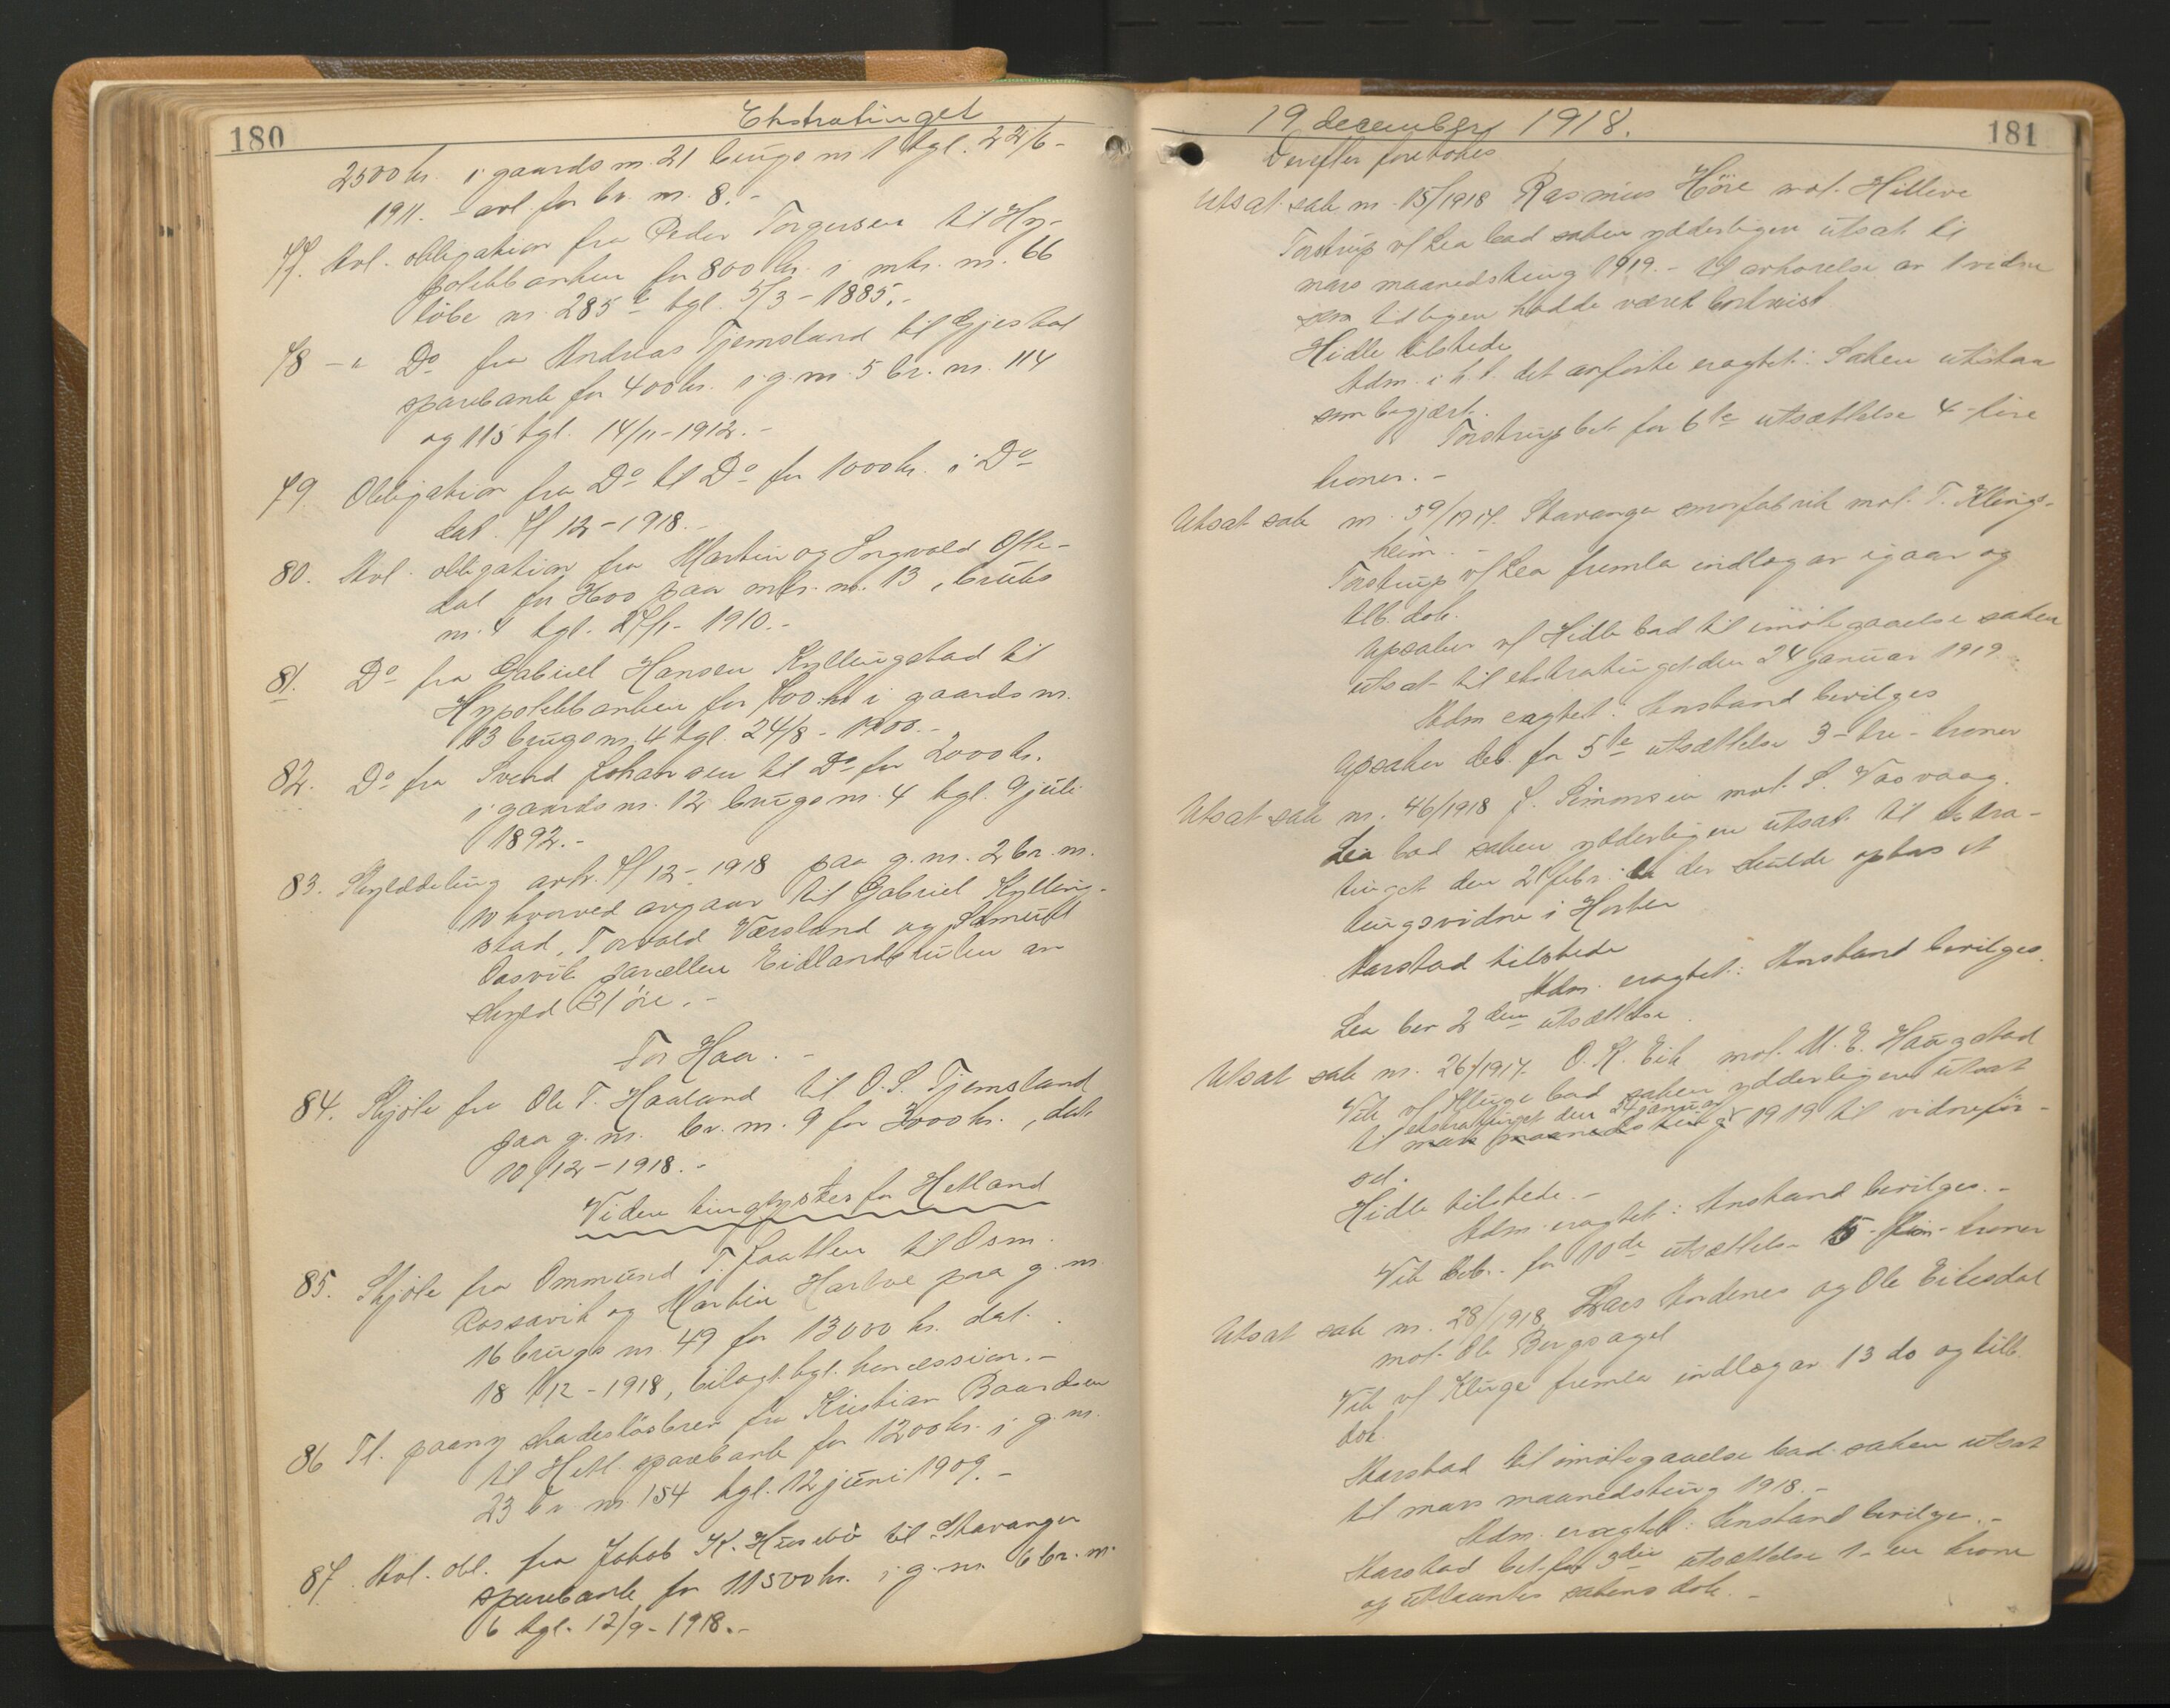 180
Ekstratinget
2500 kr. i gaards nr. 21 brugs nr. 1 tgl. 22/6-
1911. - avl. for br. nr. 8. -
77. Avl. obligation fra Peder Torgersen til Hy-
potekbanken for 800 kr. i mtr. nr. 66
löbe nr. 285 b tgl. 5/3-1885.-
78 - " Do fra Andreas Tjemsland til Gjestal
sparebank for 400 kr. i g. nr. 5 br. nr. 114
og 115 tgl. 14/11-1912.-
79. Obligation fra Do til Do for 1000 kr. i Do
dat. 7/12-1918.-
80. Avl. obligation fra Martin og Ingvald Ofte-
dal for 3600 paa mtr. nr. 13, bruks
nr. 4 tgl. 27/1-1910.-
81. Do fra Gabriel Hansen Kyllingstad til
Hypotekbanken for 800 kr i gaards nr.
13 brugs nr. 4 tgl. 24/8-1900.-
82. Do fra Svend Johansen til Do for 2000 kr.
i gaards nr. 12 brugs nr. 4 tgl. 9 juli
1892.-
83. Skylddeling avh. 7/12-1918 paa g. nr. 2 br. nr.
10 hvorved avgaar til Gabriel Kylling-
stad, Torvald Værsland og Samuel
Oasvik parcellen Eidlandskulen av
skyld 31 öre.-
For Haa.-
84. Skjöte fra Ole T. Haaland til O. S. Tjemsland
paa g. nr. br. nr. 9 for 3000 kr., dat.
10/12-1918.-
Videre tinglystes for Hetland
85. Skjöte fra Ommund T. Laatlen til Osm.
Rossavik og Martin Hartve paa g. nr.
16 brugs nr. 49 for 13000 kr. dat.
18/12-1918, bilagt kgl. koncession.-
86 Tl. paany skadeslösbrev fra Kristian Baardsen
til Hetl. sparebank for 1200 kr. i g. nr.
23 br. nr. 154 tgl. 12 juni 1909.-
87. Avl. obl. fra Jakob K. Husebö til Stavanger
sparebank for 11500 kr. i g. nr. 6 br. nr.
6 tgl. 12/9-1918.-
19 december 1918.
181
Derefter foretokes
Utsat sak nr. 15/1918 Rasmus Höie mot. Hilleve
Torstrup v/ Lea bad saken yderligere utsat til
mars maanedsting 1919.- til avhörelse av 1 vidne
som tidligere hadde været bortreist
Hidle tilstede
Adm. i h. t. det anförte eragtet: Saken utstaar
som begjært.
Torstrup bet. for 6te utsættelse 4-fire
kroner.-
Utsat sak nr. 59/1917. Stavanger smörfabrik mot. T. Klings-
heim.-
Torstrup v/ Lea fremla indlæg av igaar og
tilb. dok.
Upsaker v/ Hidle bad til imötegaaelse saken
utsat til ekstratinget den 24 januar 1919.
Adm eragtet: Anstand bevilges
Upsaker bet. for 5te utsættelse 3-tre-kroner
Utsat sak nr. 46/1918 J. Simonsen mot. S. Vasvaag.
Lea bad saken yderligere utsat til ekstra-
tinget den 21 febr: da der skulde optas et
tingsvidne i Horten
Aarstad tilstede
Adm. eragtet: Anstand bevilges.
Lea ber 2den utsættelse.
Utsat sak nr. 26/1917. O. K. Eik mot. M. E. Haugstad
Vik v/ Kluge bad saken yderligere utsat
ekstratinget den 24 januar
til mars maanedsting 1919 til vidneför-
sel.
Hidle tilstede.-
Adm. eragtet: Anstand bevilges.-
Vik bet. for 10de utsættelse 5-fem-kroner
Utsat sak nr. 28/1918 Lars Aardenes og Ole Eikesdal
mot. Ole Bergsagel
Vik v/ Kluge fremla indlæg av 13 ds og tilb
dok.
Aarstad til imötegaaelse bad saken utsat
til mars maanedsting 1918.-
Adm. eragtet: Anstand bevilges.-
Aarstad bet. for 3die utsættelse 1-en krone
og utlaantes sakens dok.-